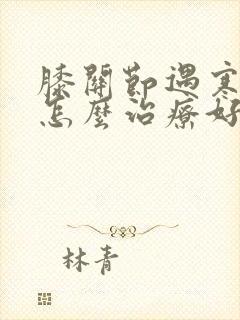 膝關節遇寒
怎麼治療好
林青